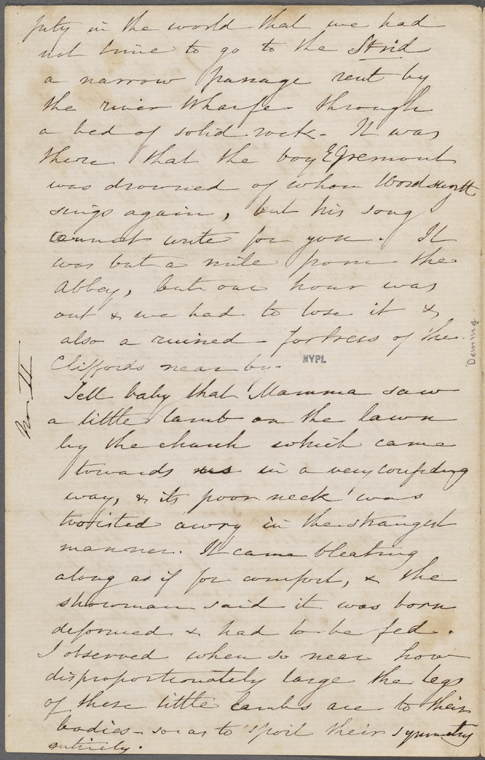 pity in the world that we had
not time to go to the Strid
a narrow passage rent by
the river Wharfe through
a bed of solid rock. It was
there that the boy Egremont
was drowned of whom Wordsworth
sings again, but his song I
cannot write for you. It
was but a mile from the
Abbey, but our hour was
out & we had to lose it &
also a ruined fortress of the
Cliffords near by.
NYPL
Deming
No. II
Tell baby that Mamma saw
a little lamb on the lawn
by the church which came
towards us in a very confiding
way, & its poor neck was
twisted awry in the strangest
manner. It came bleating
along as if for comfort, & the
showman said it was born
deformed & had to be fed.
I observed when so near how
disproportionately large the legs
of these little lambs are to their
bodies - so as to spoil their symmetry
entirely.